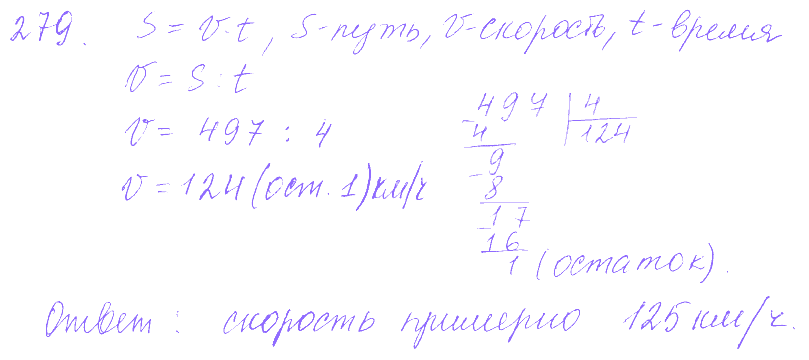 279. S = v·t, S-путь, v-скорость, t-время
v = S : t
v = 497 : 4
v = 124 (ост. 1) км/ч
497 | 4
- 4 124
9
- 8
17
- 16
1 (остаток).
Ответ: скорость примерно 125 км/ч.